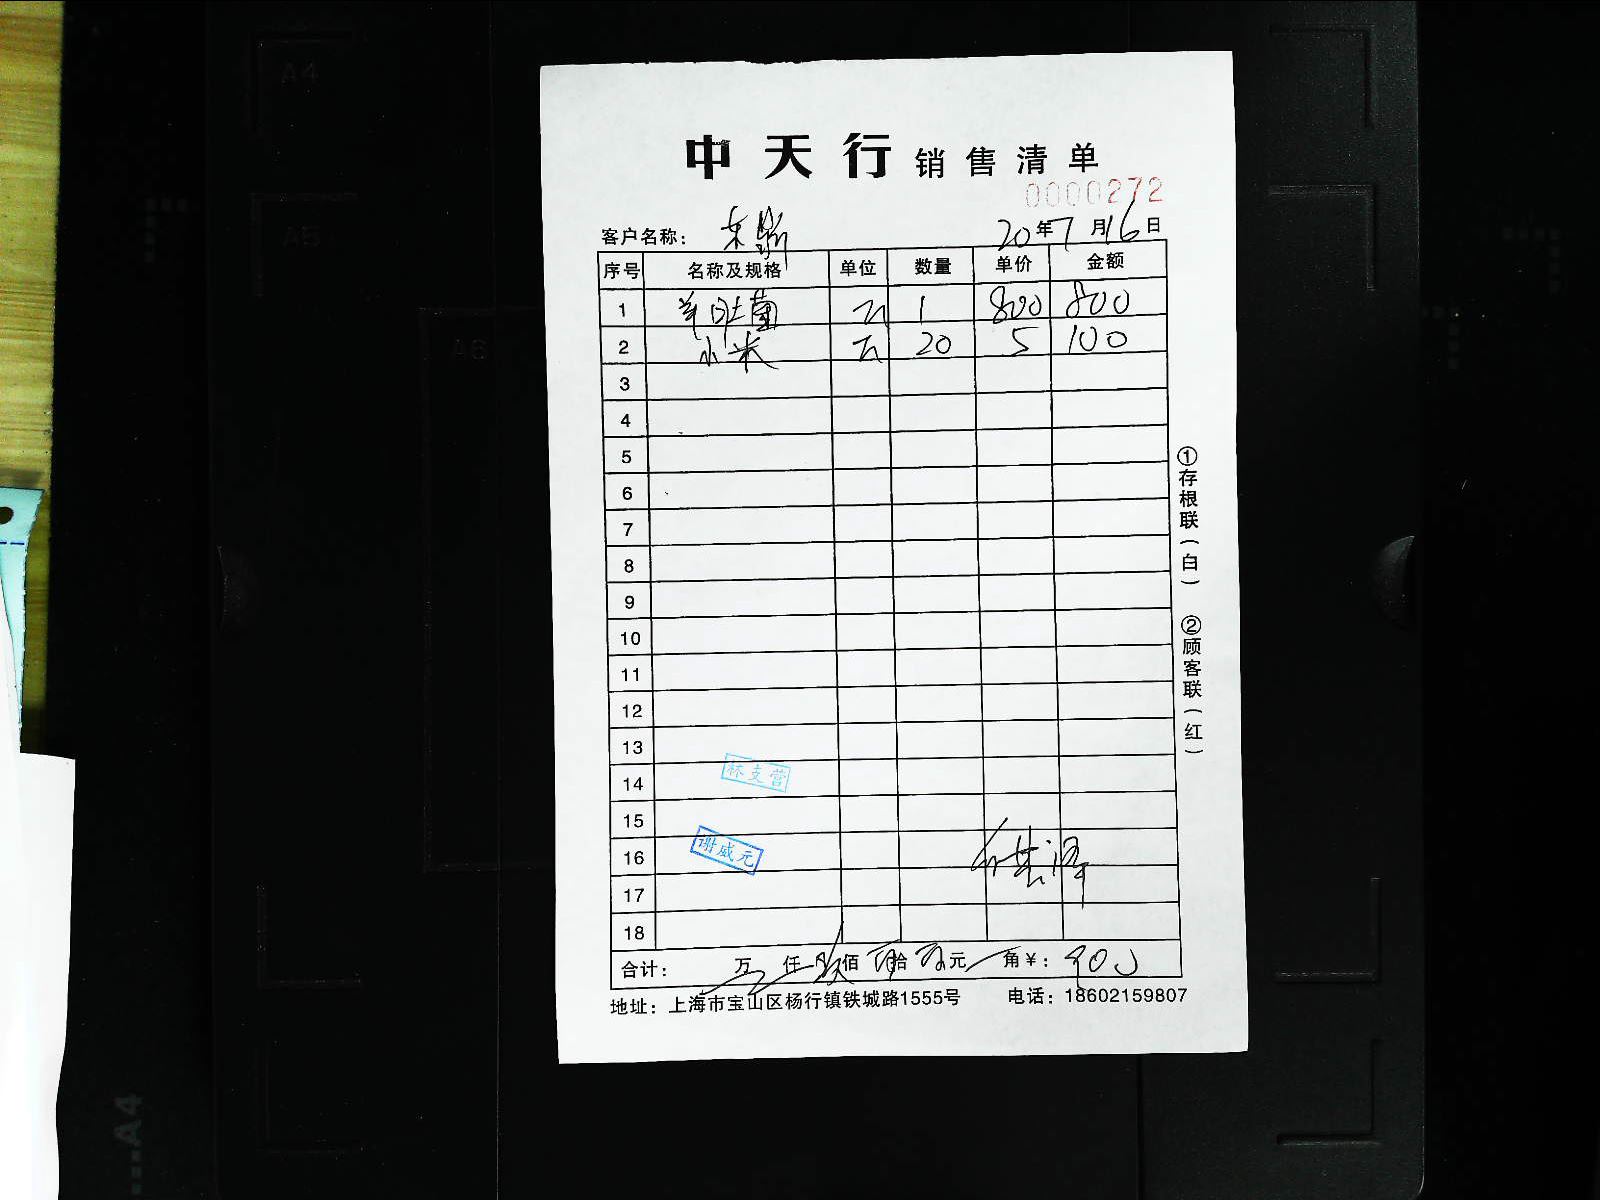 中天行 销售清单
0000272
客户名称: 20年7月16日
序号 名称及规格 单位 数量 单价 金额
1 羊肚菌 1 800 800
2 小米 20 5 100
3
4
5
6
7
8
9
10
11
12
13
14
15
16
17
18
林支营
谢威元
合计: 万 仟 佰 拾 元 角 ¥: 900
地址: 上海市宝山区杨行镇铁城路1555号 电话: 18602159807
①存根联(白) ②顾客联(红)
A4
A5
A6
A4